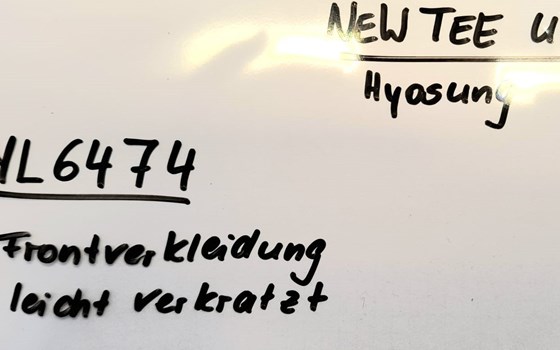 NEW TEE U
Hyosung
L6474
Frontverkleidung
leicht verkratzt